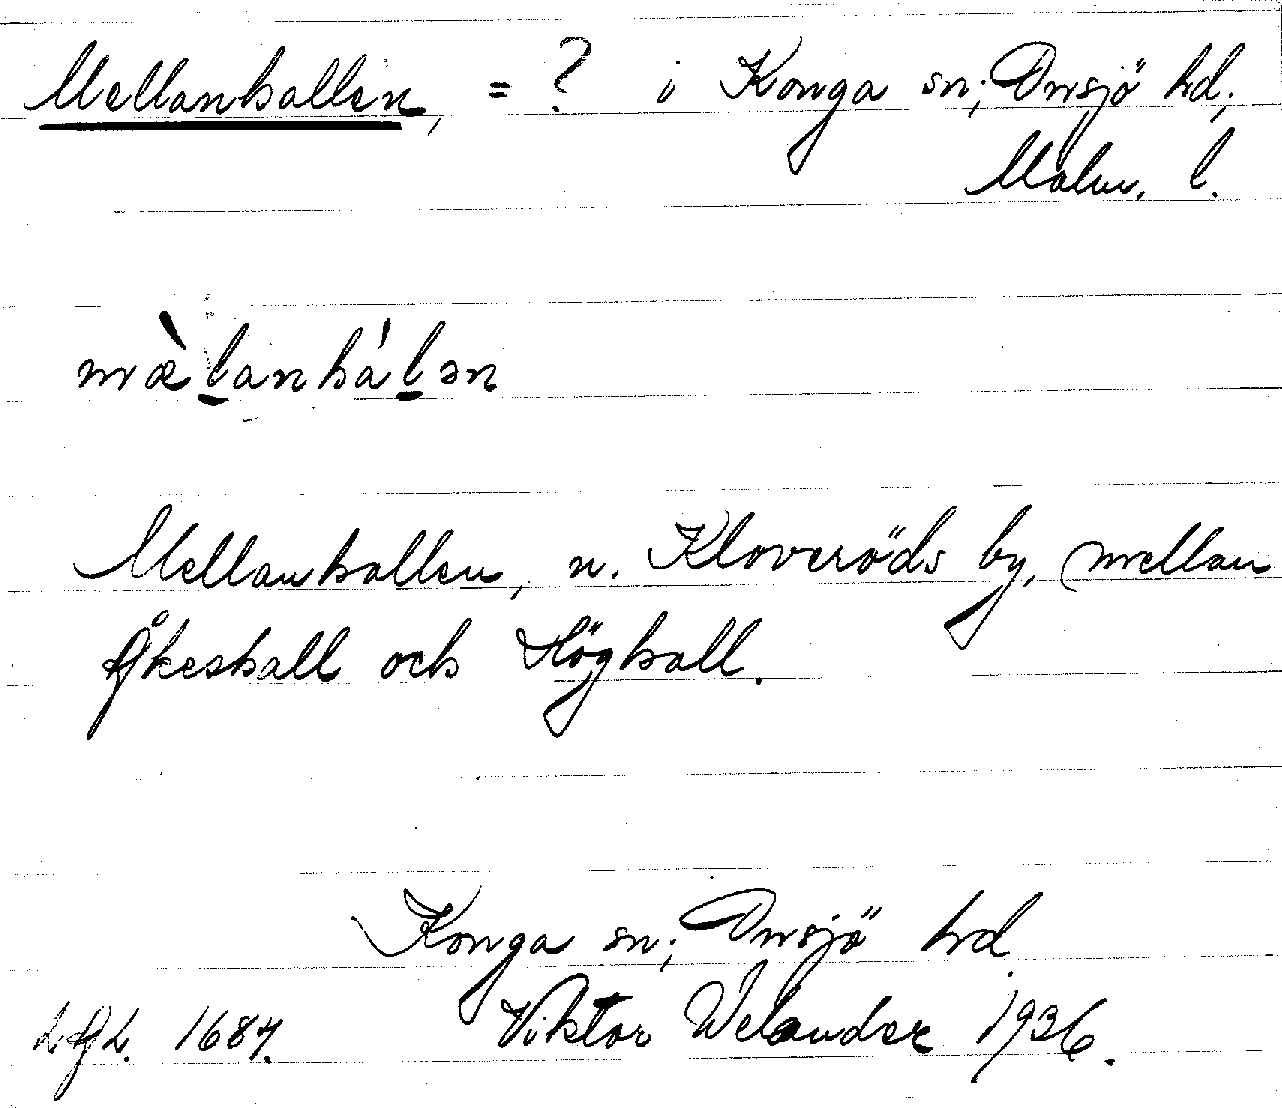 Mellanhallen, = ? i Konga sn; Onsjö hd;
Malm. l.
mæ̀lanhálən
Mellanhallen, n. Kloveröds by, mellan
Åkeshall och Höghall.
Konga sn; Onsjö hd
LAL. 1687. Viktor Welander 1936.